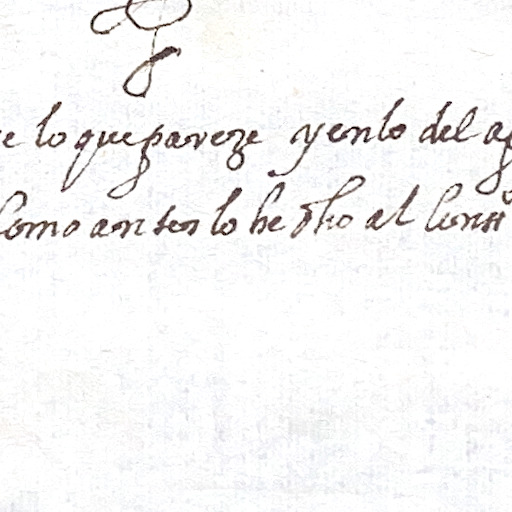 e lo que pareze y en lo del ap
Como antes lo he dho al Conss.º